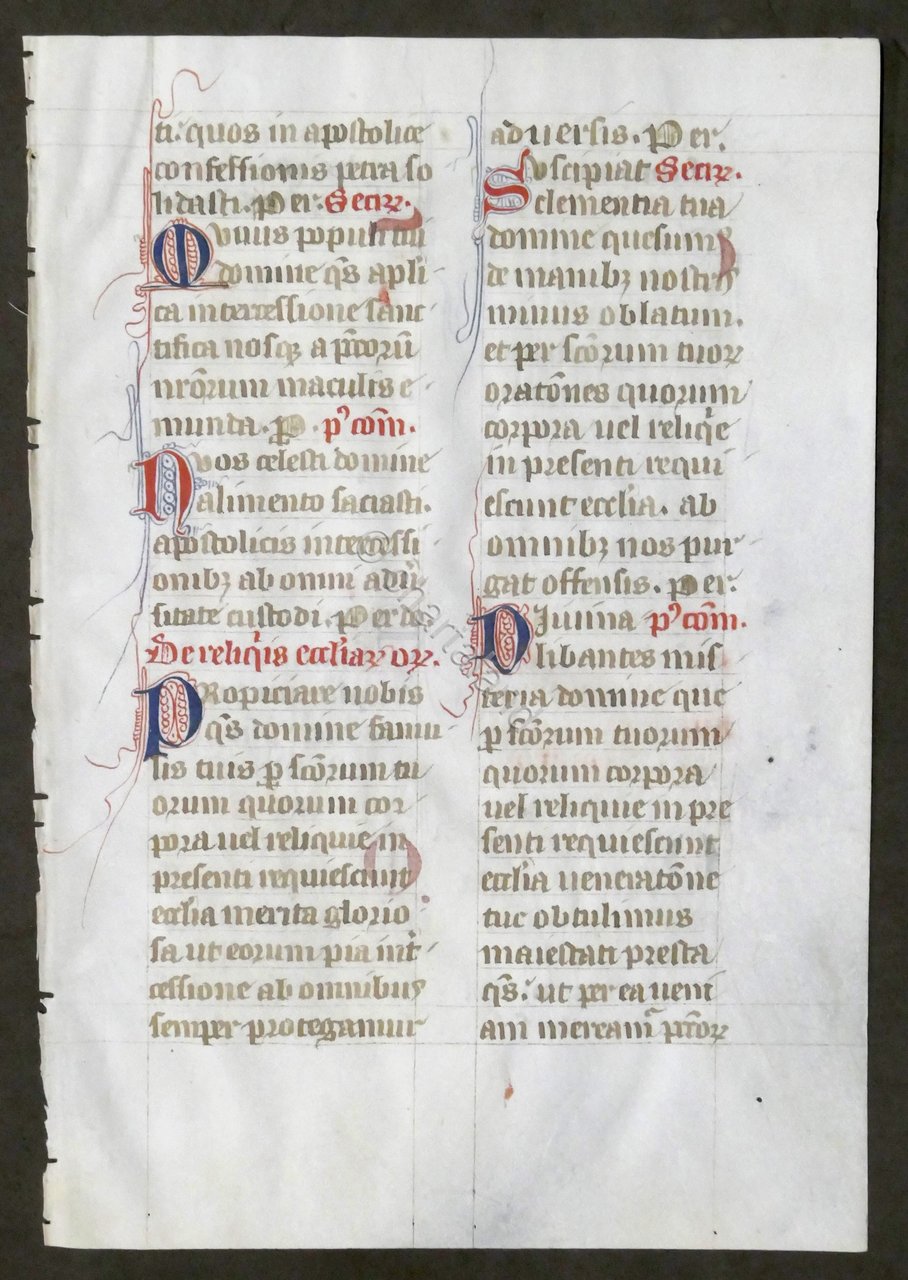 ti. quos in apostolice
confessionis petra so
lidasti. Per. Secrꝫ.
Munus populi tui
domine qs̄ apli
ca intercessione sanc
tifica nosqꝫ a pctōrū
nrōrum maculis e
munda. ꝑ. pꝰ com̄.
Quos celesti domine
alimento saciasti.
apostolicis intercessi
onibꝫ ab omni adū
sitate custodi. Per do
De reliqⁱis eccl'iaꝝ oꝝ.
PRopiciare nobis
qs̄ domine famu
lis tuis ꝑ scōrum tu
orum quorum cor
pora uel reliquie in
presenti requiescunt
eccl'ia merita glorio
sa ut eorum pia int̄
cessione ab omnibus
semper protegamur
aduersis. Per.
Suscipiat Secrꝫ.
clementia tua
domine quesumꝰ
de manibꝫ nostris
munus oblatum.
et per scōrum tuoꝝ
oratōnes quorum
corpora uel reliqⁱe
in presenti requi
escunt eccl'ia. ab
omnibꝫ nos pur
gat offensis. Per.
DIuina pꝰ com̄.
libantes mis
teria domine que
ꝑ scōrum tuorum
quorum corpora
uel reliquie in pre
senti requiescunt
eccl'ia ueneratōne
tue obtulimus
maiestati presta
qs̄. ut per ea ueni
am mereamᷣ pctōꝝ